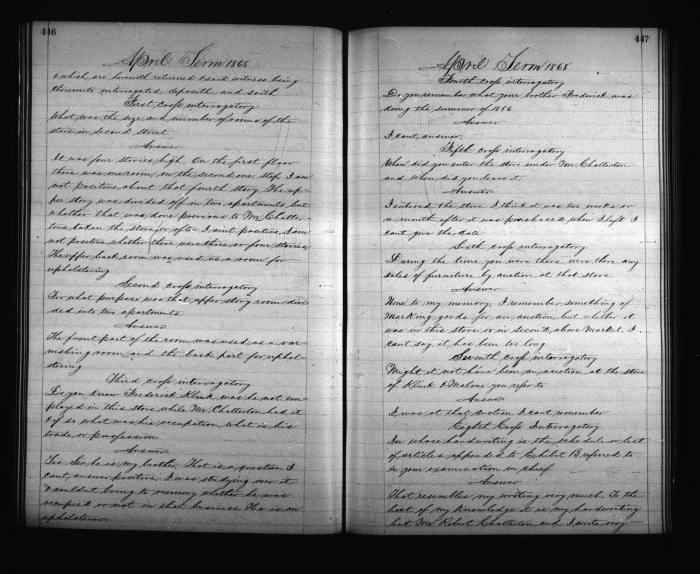 446
April Term 1868
& which are herewith returned & said witness being
thereunto interrogated deposeth and saith
First cross interrogatory
What was the size and number of rooms of the
store in Second street
Answer
It was four stories high. On the first floor
there was one room, on the second one, stop, I am
not positive about that fourth story. The up-
per story was divided off in two apartments but
whether that was done previous to Mr Chatter-
tons taken the store for after I aint positive. I am
not positive whether there were three or four stories
The upper back room was used as a room for
upholstering
Second cross interrogatory
For what purpose was that upper story room divi-
ded into two apartments
Answer
The front part of the room was used as a var-
nishing room and the back part for uphol-
stering
Third cross interrogatory
Do you know Frederick Klink, was he not em-
ployed in this store while Mr. Chatterton had it
& if so what was his occupation, what is his
trade or profession
Answer
Yes Sir, he is my brother. That is a question I
cant answer positive, I was studying over it
& couldnt bring to memory whether he was
occupied or not in that business. He is an
upholsterer
447
April Term 1868
Fourth cross interrogatory
Do you remember what your brother Frederick was
doing the summer of 1856
Answer
I cant answer
Fifth cross interrogatory
When did you enter the store under Mr Chatterton
and when did you leave it
Answer
I entered the store I think it was two weeks or
a month after it was purchased, when I left I
cant give the date
Sixth cross interrogatory
During the time you were there were there any
sales of furniture by auction at that store
Answer
None to my memory, I remember something of
marking goods for an auction, but whether it
was in this store or in Second, above Market, I
cant say, it has been too long
Seventh cross interrogatory
Might it not have been an auction at the store
of Klink & Malone you refer to
Answer
I was at that auction I cant remember
Eighth Cross Interrogatory
In whose handwriting is the schedule or list
of articles appended to Exhibit B referred to
in your examination in chief
Answer
That resembles my writing very much. To the
best of my knowledge it is my handwriting
but Mr Robert Chatterton and I write very